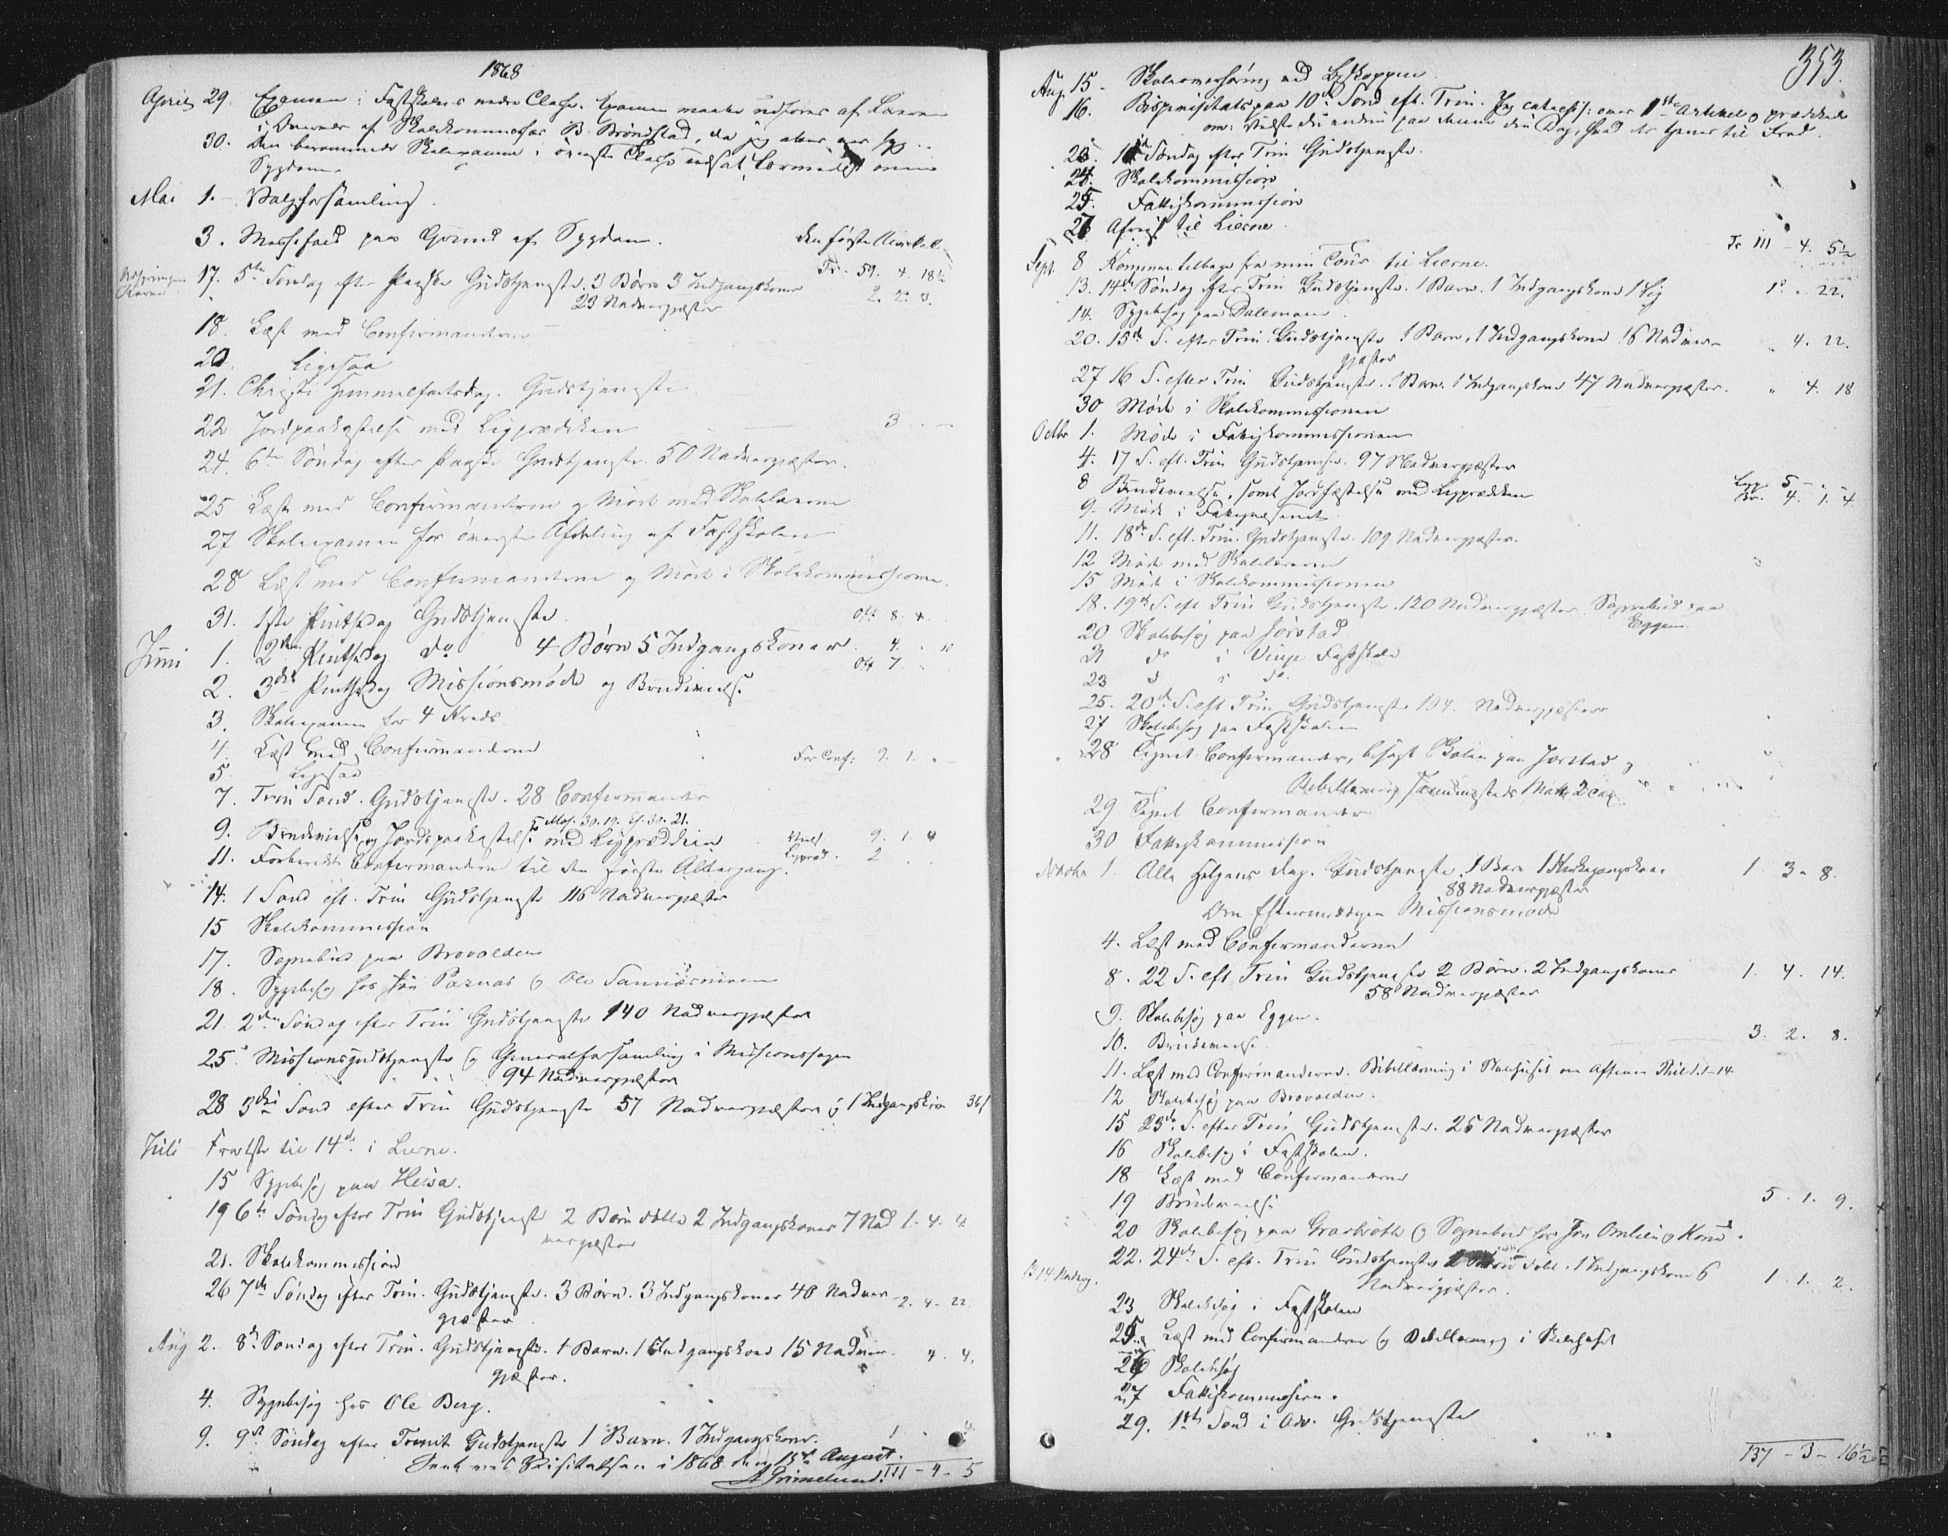 1868
April 29. Examen i Fastskolens nedre Classe. Examen maatte udføres af Læreren
i Nærvær af Skolekommissær B. Brøndstad, da jeg
30. Den berammede Skoleexamen i øverste Classe udsat formedelst min
Sygdom.
Mai 1. Valgforsamling.
3. Messefald paa Grund af Sygdom. den første
17. 5te Søndag efter Paaske Gudstjeneste. 3 Børn 3 Indgangskoner Tr. 59. 4. 18½
23 Nadvergjæster 2. 2. 8.
18. Læst med Confirmanderne
20. Ligesaa
21. Christi Himmelfartsdag. Gudstjeneste
22 Jordpaakastelse med Ligprædiken 3
24. 6te Søndag efter Paaske Gudstjeneste. 50 Nadvergjæster.
25 Læst med Confirmanderne og Møde med Skolelærerne
27 Skoleexamen for øverste Afdeling af Fastskolen
28 Læst med Confirmanderne og Møde i Skolekommissionen.
31. 1ste Pintsedag Gudstjeneste. Off. 8. 4.
Juni 1. 2den Pintsedag do 4 Børn 5 Indgangskoner 4.
Off 7.
2. 3die Pintsedag Missionsmøde og Brudevielse
3. Skoleexamen for 4 Kreds.
4. Læst med Confirmanderne For Conf: 9. 1.
5. Ligesaa
7. Trin Sønd. Gudstjeneste. 28 Confirmander
9. Brudevielse og Jordpaakastelse med Ligprædiken 9. 1.
11. Forberedt Confirmanderne til den første Altergang. Ligpræd. 2
14. 1 Sønd eft. Trin Gudstjeneste 116 Nadvergjæster
15 Skolekommission
17. Sognebud paa Brovolden
18. Sygebesøg hos Jon Parnas og Ole
21. 2den Søndag efter Trin Gudstjeneste 140 Nadvergjæster
25. Missionsgudstjeneste og Generalforsamling i Missionssagen
94 Nadvergjæster
28 3die Sønd efter Trin Gudstjeneste 57 Nadvergjæster og 1 Indgangskone 36/
Juli Fra 1ste til 14de i Lierne.
15 Sygebesøg paa Heisa.
19 6te Søndag efter Trin Gudstjeneste 2 Børn døbte 2 Indgangskoner 7 Nad 1. 4. 4
vergjæster
21. Skolekommission
26 7de Søndag efter Trin. Gudstjeneste. 3 Børn. 3 Indgangskoner 40 Nadver 2. 4. 22.
gjæster
Aug 2. 8de Søndag efter Trin. Gudstjeneste. 1 Barn. 1 Indgangskone 15 Nadver 4. 4.
gjæster.
4. Sygebesøg hos Ole Berg.
9. 9de Søndag efter Trinit Gudstjeneste 1 Barn. 1 Indgangskone.
Seet ved Visitatsen i 1868 den 15de August. 111 - 4 - 5
A Grimelund.
353.
Aug. 15. Skoleoverhøring ved Biskoppen.
16. Bispevisitats paa 10de Sønd eft. Trin. Jeg catechis: over 1ste Artikel og prædikede
om: Vidste du endnu paa denne din Dag, hvad der tjener til Fred.
23. 11te Søndag efter Trin Gudstjeneste.
24. Skolekommission
25. Fattigkommission
26 Afreist til Lierne Tr 111 - 4. 5½
Sept. 8 Kommen tilbage fra min Tour til Lierne.
13. 14de Søndag efter Trin Gudstjeneste. 1 Barn. 1 Indgangskone 1 Lig 1. . 22.
14. Sygebesøg paa Dalemoen.
20. 15de S. efter Trin. Gudstjeneste. 1 Barn, 1 Indgangskone 16 Nadver- „ 4. 22.
gjæster
27 16 S. efter Trin Gudstjeneste. 1 Barn. 1 Indgangskone 47 Nadvergjæster. „ 4. 18
30 Møde i Skolekommissionen
Octbr 1. Møde i Fattigkommissionen
4. 17 S. eft. Trin Gudstjeneste. 97 Nadvergjæster
8 Brudevielse, samt Jordfæstelse med Ligprædiken Ligp. 5 -
Br. 4. 1. 4.
9. Møde i Fattigvæsenet
11. 18de S. eft. Trin. Gudstjeneste. 109 Nadvergjæster.
12 Møde med Skolelærerne
15 Møde i Skolekommissionen
18. 19de S. eft Trin Gudstjeneste. 120 Nadvergjæster. Sognebud paa
Eggen
20 Skolebesøg paa Jørstad
21 do i Vinje Fastskole
23 d i do.
25. 20de S. eft Trin Gudstjeneste 134. Nadvergjæster
27 Skolebesøg paa Fastskolen
28 Tegnet Confirmander, besøgt Skolen paa Jørstad og
Bibellæsning sammesteds Matth 2 Cap.
29 Tegnet Confirmander
30 Fattigkommission
Novbr 1. Alle Helgens Dag. Gudstjeneste. 1 Barn 1 Kirkegangskone 1 3 - 8.
88 Nadvergjæster
Om Eftermiddagen Missionsmøde
4. Læst med Confirmanderne
8. 22 S. eft Trin Gudstjeneste 2 Børn. 2 Indgangskoner 1. 4. 14.
58 Nadvergjæster
9. Skolebesøg paa Eggen.
10. Brudevielse. 3. 2. 8.
11. Læst med Confirmanderne. Bibellæsning i Skolehuset om Aftenen Phil 1. 1-14
12 Skolebesøg paa Brovolden.
15 23de S. efter Trin Gudstjeneste. 26 Nadvergjæster
16 Skolebesøg i Fastskolen.
18 Læst med Confirmanderne
19 Brudevielse 5. 1. 9.
20 Skolebesøg paa og Sognebud hos Jon og Kone.
22. 24de S. eft. Trin Gudstjeneste døbt. 1 Indgangskone 6 1. 1. 2.
Nadvergjæster.
23 Skolebesøg i Fastskolen
25. Læst med Confirmanderne og Bibellæsning i Skolehuset
26 Skolebesøg
27 Fattigkommission.
29. 1ste Sønd i Adv. Gudstjeneste
137 - 3 - 16½